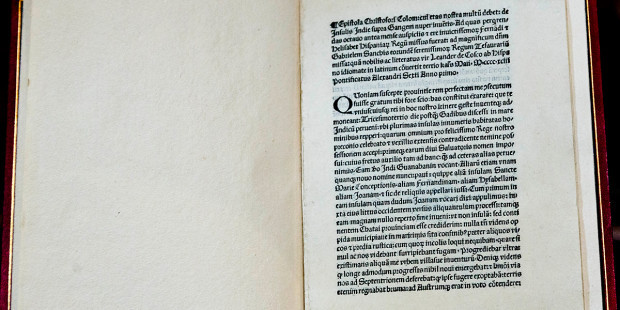 ¶ Epistola Christofori Colom: cui etas nostra multũ debet: de
Insulis Indie supra Gangem nuper inuentis. Ad quas perqren-
das octauo antea mense auspiciis et ere inuictissimoȝ Fernãdi et
Helisabet Hispaniaȝ Regũ missus fuerat: ad magnificum dñm
Gabrielem Sanchis eorundẽ serenissimoȝ Regum Tesaurariũ
missa: quã nobilis ac litteratus vir Leander de Cosco ab Hispa
no idiomate in latinum cõuertit tertio kal's Maii. M.cccc.xciii
Pontificatus Alexandri Sexti Anno primo.
QUoniam suscepte prouintie rem perfectam me ꝯsecutum
fuisse gratum tibi fore scio: has constitui exarare: que te
vniuscuiusqȝ rei in hoc nostro itinere geste inuenteqȝ ad-
moneant: Tricesimotertio die postqȝ Gadibus discessi in mare
Indicũ perueni: vbi plurimas insulas innumeris habitatas ho-
minibus repperi: quarum omnium pro felicissimo Rege nostro
preconio celebrato et vexillis extensis contradicente nemine pos-
sessionem accepi: primeqȝ earum diui Saluatoris nomen impo-
sui: cuius fretus auxilio tam ad hanc qȝ ad ceteras alias perue-
nimus. Eam ṽo Indi Guanahanin vocant. Aliarũ etiam vnam
quanqȝ nouo nomine nuncupaui: quippe aliã insulam Sancte
Marie Conceptionis. aliam Fernandinam. aliam Hysabellam.
aliam Joanam. et sic de reliquis appellari iussi. Cum primum in
eam insulam quam dudum Joanam vocari dixi appulimus: iu
xta eius littus occidentem versus aliquantulum processi: tamqȝ
eam magnam nullo reperto fine inueni: vt non insulam: sed conti
nentem Chatai prouinciam esse crediderim: nulla tñ videns op-
pida municipiaue in maritimis sita confinibꝰ preter aliquos vi-
cos et predia rustica: cum quoȝ incolis loqui nequibam. quare si
mul ac nos videbant surripiebant fugam. Progrediebar vltra:
existimans aliquã me vrbem villasue inuenturũ. Deniqȝ videns
qȝ longe admodum progressis nihil noui emergebat: et hmõi via
nos ad Septentrionem deferebat: qȝ ipse fugere exoptabã: terris
etenim regnabat bruma: ad Austrumqȝ erat in voto cõtendere: